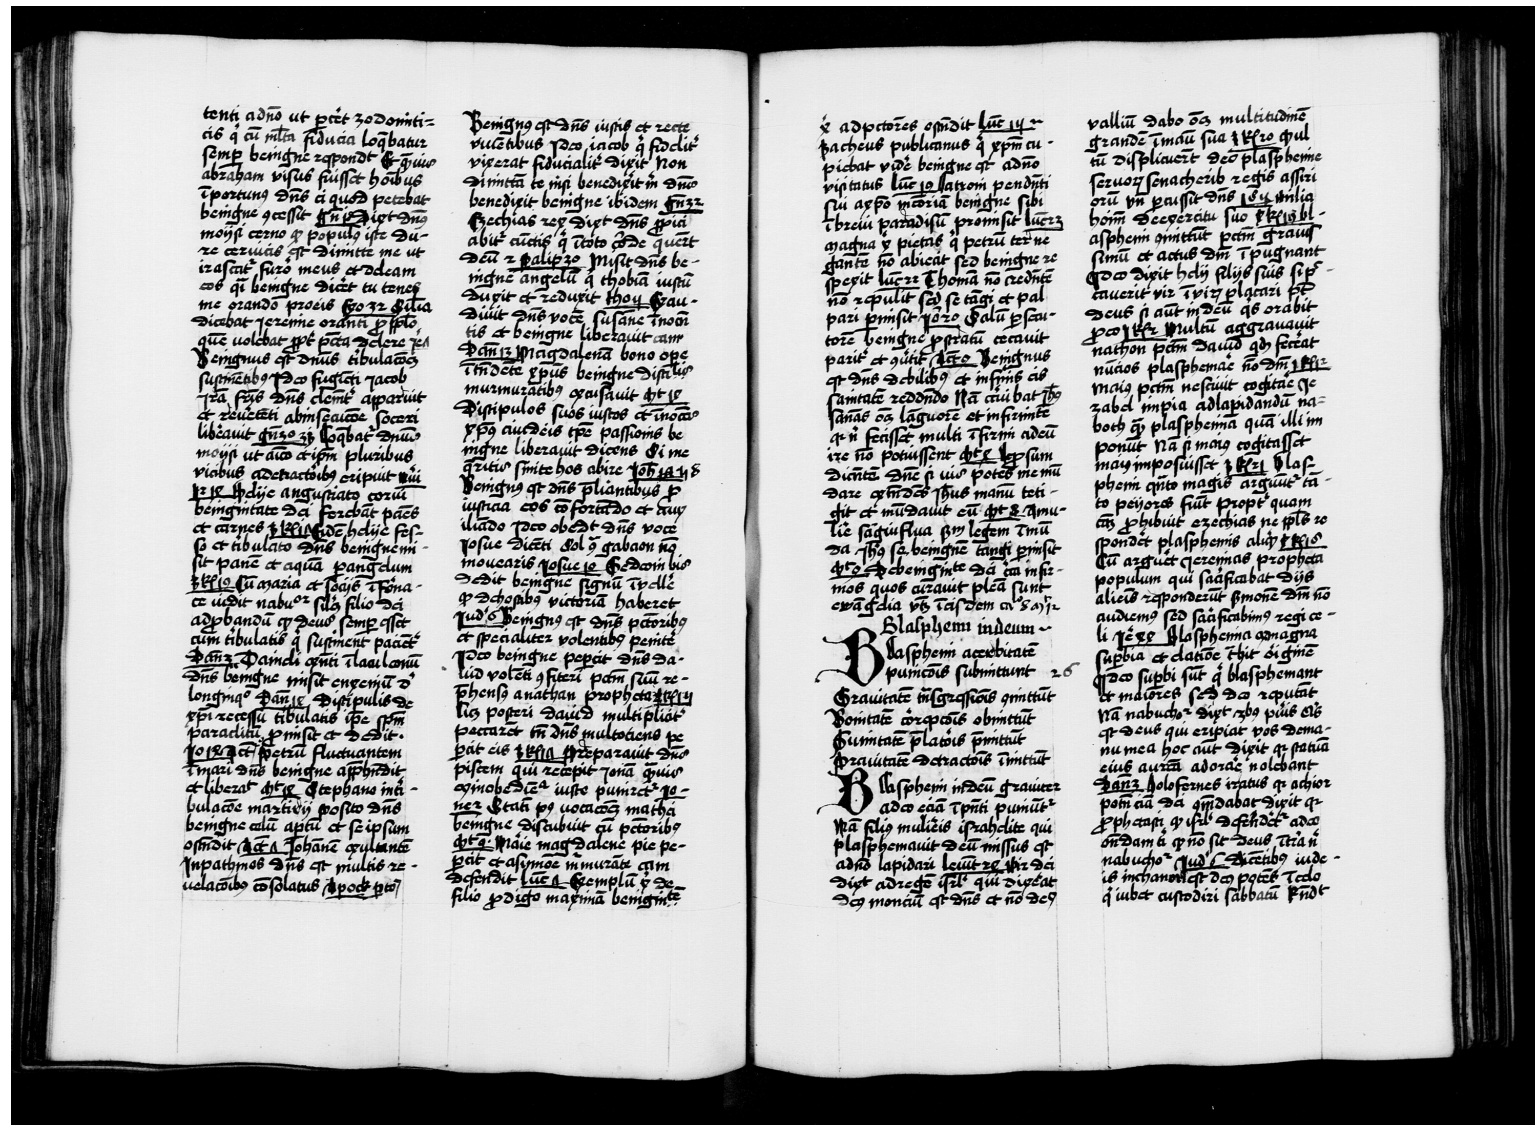 tenti adno ut pcet zodomiti=
cis q cu mlta fiducia loqbatur
semp benigne respondt Et quis
abraham visus fuisset hoibus
iportunus dns ei quod petebat
benigne gcessit gn 18 Dixt dnus
moysi cerno qp populus iste du-
re cervicis est dimitte me ut
irascat furor meus et deleam
eos qi benigne dicet tu tenes
me orando proeis Exo 32
dicebat Jeremie oranti p pplo
que volebat ppt pcta delere
Benignus est dnus tribulacoes
sustinetibus Ideo fugieti Jacob
ira fris dns clemet apparuit
et reverteti soceri
liberavit gn 30 31 loqbat dnus
moysi ut aico et ipm pluribus
vicibus adetractoribus eripuit
helye angustiato corui
benignitate dei ferebat panes
et carnes 3 Rl 17 Eide helye fes-
so et tibulato dns benigne mi-
sit pane et aqua p angelum
3 Rl 19 Cu azaria et socijs i forna-
ce vidit nabuor silis filio dei
adprobandu qp deus semp esset
cum tibulatis q sustinent pacient
Dan 3 Danieli exnti i lacu leonu
dns benigne misit
Dan 14 Discipulis de
xpi recessu tibulatis ipe spm
paraclitu pmisit et dedit.
Petru fluctuantem
i mari dns benigne apphndit
et liberat mt 14 Stephano in ti-
bulacoe martirij posito dns
benigne celu aptu et se ipsum
ostendit Act 7 Johane exultante
Inpathmos dns est multis re-
velacoibus cosolatus Apoc p to
Benignus est dns iustis et recte
viventibus Ideo iacob q fidelit
vixerat fiducialit dixit Non
dimitta te nisi benedixit m dnus
benedixit benigne ibidem gn 32
Ezechias rex dixt dns ppici
abit cunctis q i toto corde quert
deu 2 palip 30 Misit dns be-
nigne angelu q thobia iustu
duxit et reduxit thoy Exau-
divit dns voce susane inocn
tis et benigne liberavit eam
Dan 13 Magdalena bono ope
xpus benigne discipulis
murmuratibus excusavit mt 26
Discipulos suos iustos et inocentes
xpus a iudeis tpe passionis be
nigne liberavit dicens Si me
queritis sinite hos abire Joh 18
Benignus est dns pliantibus p
iusticia eos cofortando et aux
iliando Ideo obedt dns voce
Josue dicenti Sol 9 gabaon ne
movearis Josue 10 Gedeoni bis
dedit benigne signu i velle
qp dehostibus victoria haberet
Jud 6 Benignus est dns pctoribus
et specialiter volentibus penite
Ideo benigne pepcit dns da-
vid volenti gfiteri pctm suu re-
phensus a nathan propheta
licz posteri david multiplicit
peccaret tn dns multotiens pe
pcit eis 3 Rl 11 Preparavit dns
piscem qui recepit Jona quis
iuste puniret Jo-
ne 2 Statu pus vocacoez mathei
benigne discubuit cu pctoribus
mt 9 Marie magdalene pie pe-
pcit et a simoe murmurate eam
defendit luc 7 Exemplu x de
filio prodigo maxima benignite
x adpctores ostndit luc 15
zacheus publicanus q xpm cu-
piebat vide benigne est adno
visitatus luc 19 latroni pendnti
sui axpo memoria benigne sibi
i brevi paradisu promisit luc 23
magna x pietas q petru ter ne
gante no abiecit sed benigne re
spexit luc 22 Thoma no credente
no repulit sed se tangi et pal
pari pmisit Jo 20 Salu psecu-
tore benigne pstratu cecavit
parit et gvtit Act 9 Benignus
est dns debilibus et infirmis eis
sanitate reddndo Na curabat
sanas oes languore et infirmite
qr n fecisset multi ifirmi adeu
ire no potuissent mt 8 leprsum
dicente dne si vis potes me mu
dare extndes Jhus manu teti-
git et mundavit eu mt 8 Amu-
lie sanguiflua scdm legem imu
da Jhus se benigne tangi pmisit
mt 9 De benignite dei circa infir-
mos quos curavit plea sunt
ewagelia
Blasphemi in deum
Blasphemi acerbitate
punicois submittunt 26
Gravitate tnsgressiois gmittut
Bonitate correpcois obmittut
Suavitate platois pmittut
Pravitate detractois imittut
Blasphemi indeu graviter
adeo ecia i pnti puniutr
Na filius mulieris israhelite qui
plasphemavit deu missus est
adno lapidari levit 24 Vir dei
dixt ad rege isrl qui dixerat
deus montiu est dns et no deus
valliu dabo oez multitudine
grande imanu sua 3 Rl 20 Mul
tu displicuert deo plaspheme
servorum senacherib regis assiri
oru vn pcussit dns 185 milia
hoim deexercitu suo 4 Rl 19 bl-
asphemi gmittut pctm gravius
simu et actus dm ipugnant
Ideo dixit hely filijs suis si p-
caverit vir i viru placari pt
deus si aut in deu qs orabit
p eo 1 Rl 2 Multu aggravavit
nathon pctm david qn fecerat
nucios plasphemae no dm 2 Rl 12
Maius pctm nescivit cogitae Je
zabel impia adlapidandu na-
both qz plasphemia qua illi im
ponut Na si maius cogitasset
maius imposuisset 3 Rl 21 Blas-
phemi qnto magis arguutr ta-
to peyores fiut Propt quam
cam phibuit ezechias ne ppls re
spondet plasphemis aliquid 4 Rl 18
Cu argueret Jeremias propheta
populum qui sacificabat dijs
alienis responderut smone dm no
audiemus sed sacificabimus regi ce-
li Jere 44 Blasphemia amagna
supbia et elatioe thit origine
Ideo supbi sut q blasphemant
et maiores sed deo reputat
Na nabuchor dixt tbus puis Qis
est deus qui eripiat vos dema-
nu mea hoc aut dixit qr statua
eius aurea adorae nolebant
Dan 3 holofernes iratus qr achior
potncia dei gmdabat dixit qr
pphetasti qp isrl defendetr adeo
ondam ti qp no sit deus itra n
nabuchor Jud 6 dicetibus iude-
is inchanor est deus potes i celo
q iubet custodiri sabbatu Rndt